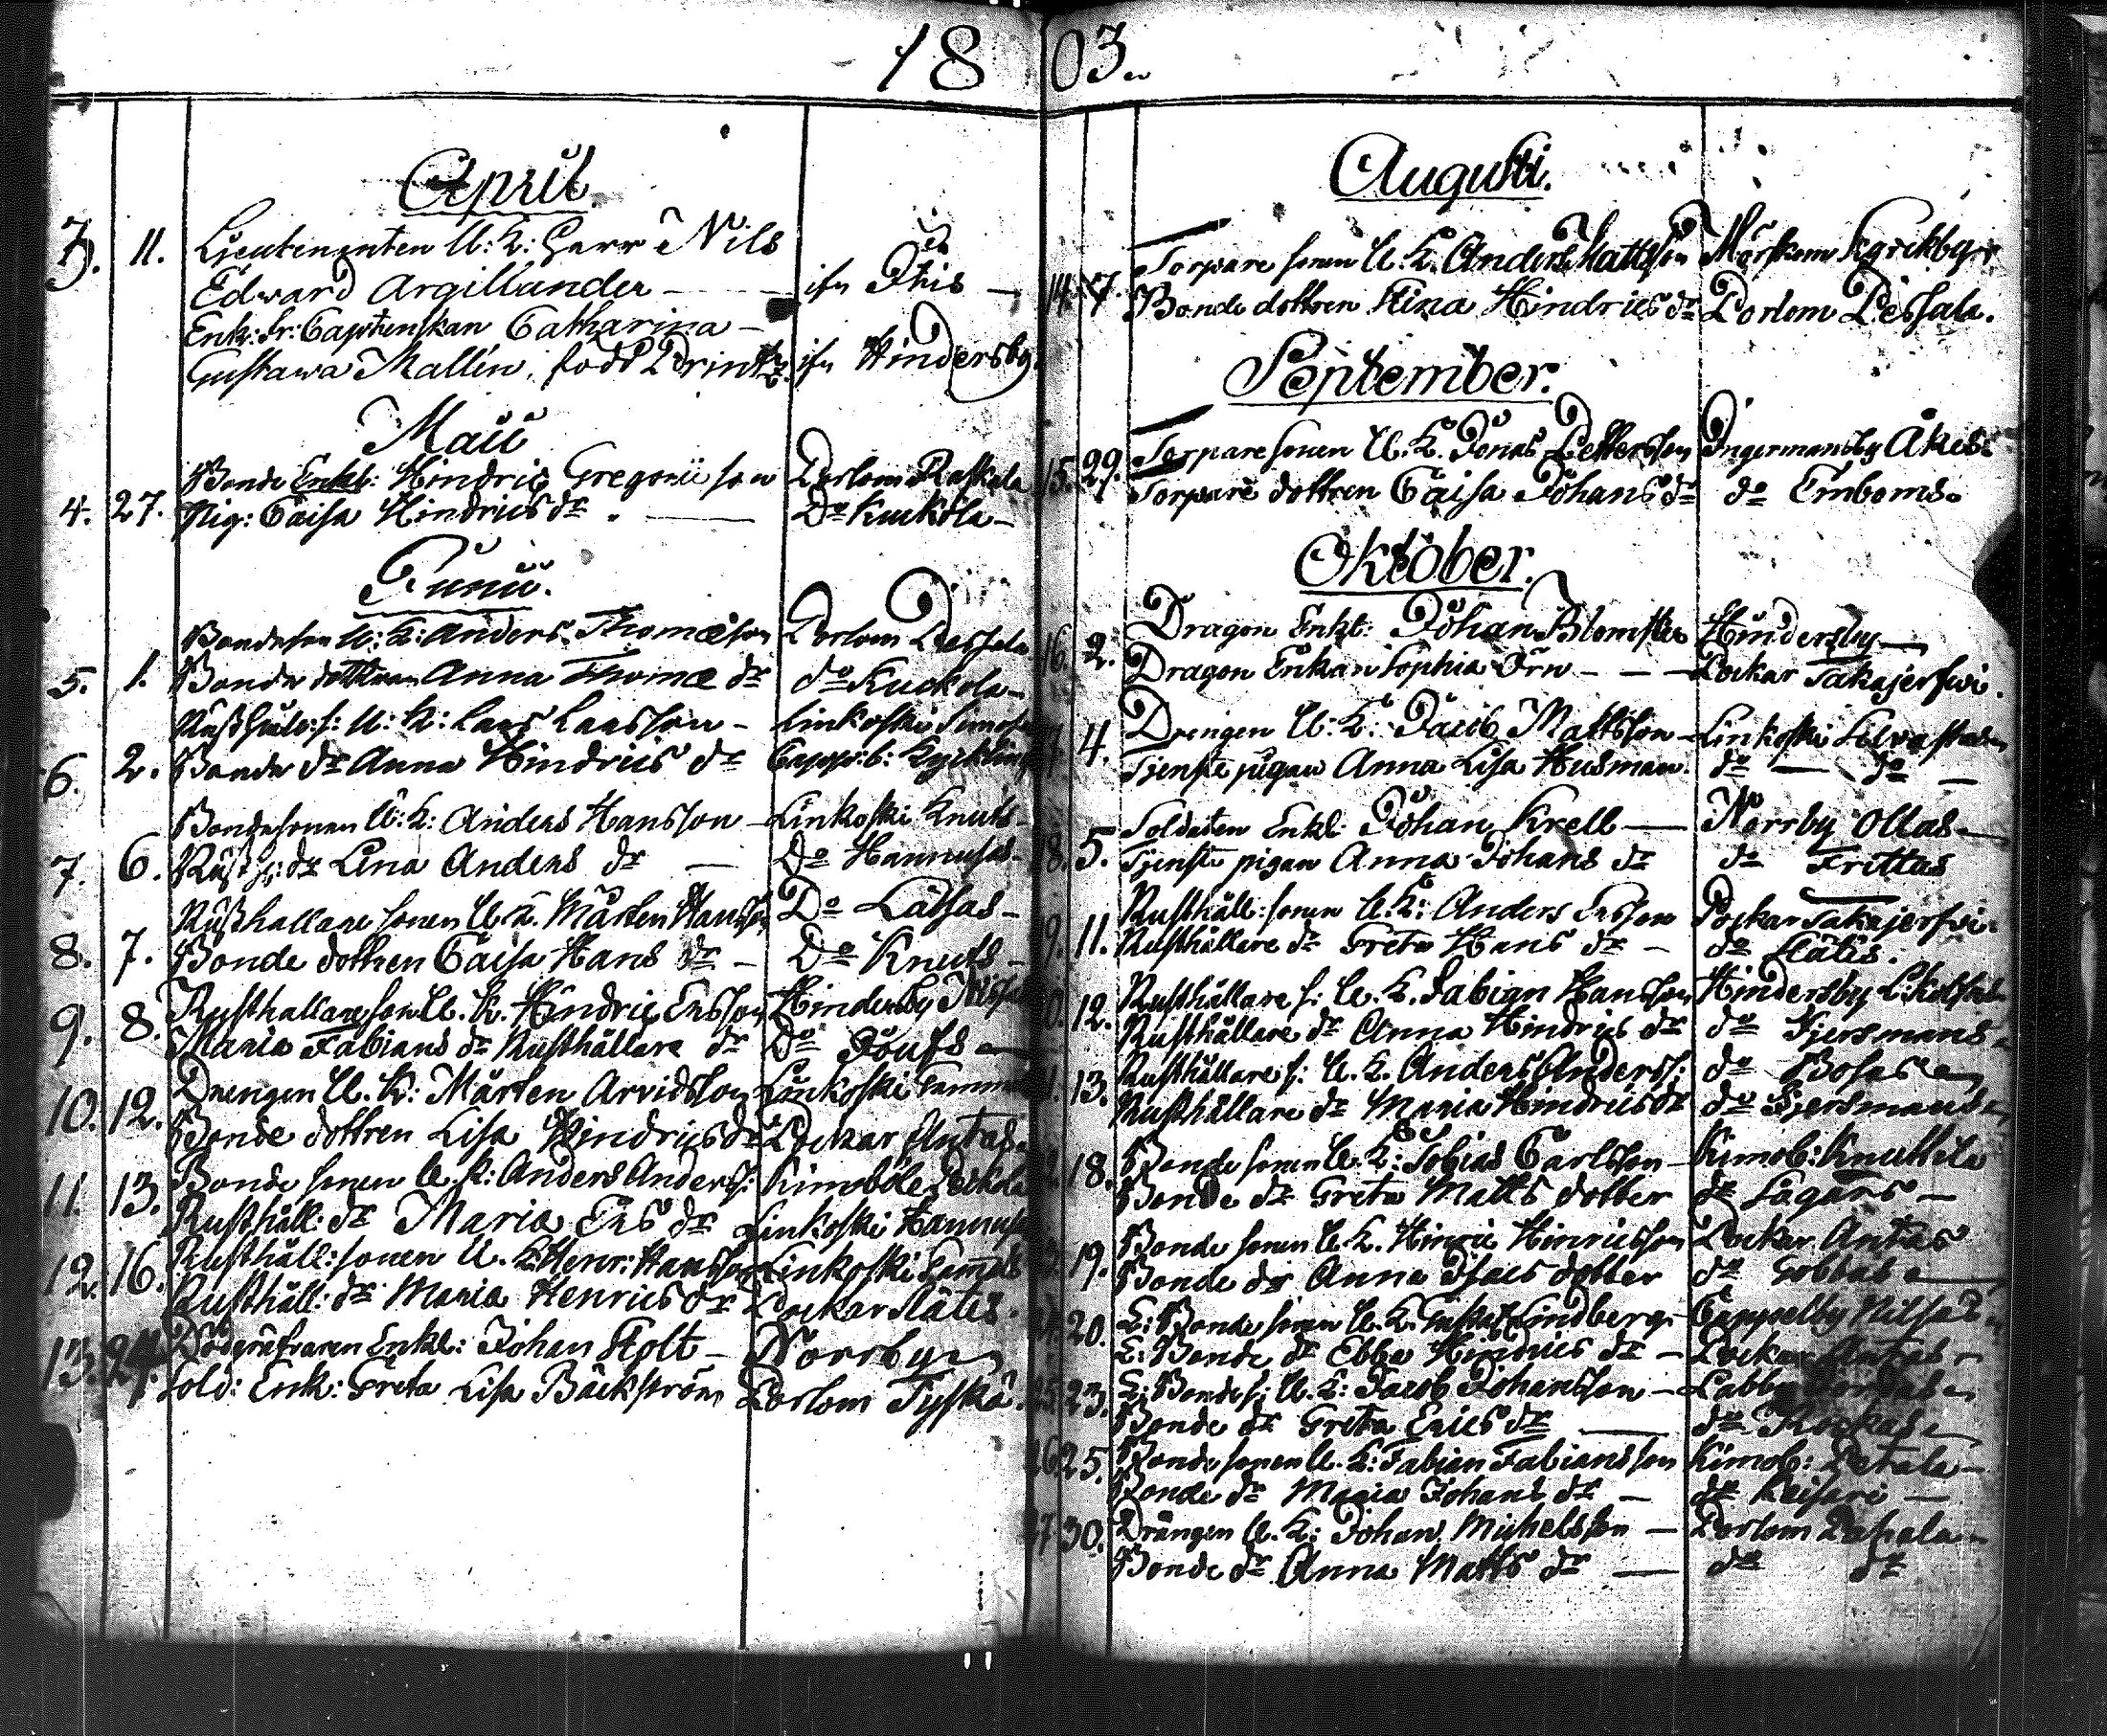 1803.
April.
3. 11. Lieutenanten U: K: Herr Nils
Edward Argillander — ifr. Ithis —
Enk: fr: Captenskan Catharina —
Gustawa Mallin, född Printz. ifr. Hindersby.
Maii
Bonde Enkl: Hindric Gregorii son Porlom Raskala
4. 27. Pig: Caisa Hindrics dr. — Do Kuckola —
Junii.
Bondeson U: K: Anders Thomæson Porlom Pessala
5. 1. Bonde dottren Anna Thomæ dr do Kuckola —
Rusthåll: s: U: K: Lars Larsson — Linkoski Simos
6. 2. Bonde dr Anna Hindrics dr Capp: b: Kyckling
Bondesonen U: K: Anders Hansson — Linkoski Knuts —
7. 6. Rusth: dr Lena Anders dr — Do Hannusas —
Rusthållare sonen U. K. Mårten Hansson Do Låssas —
8. 7. Bonde dottren Caisa Hans dr — Do Knuts —
9. 8. Rusthållare son U. K. Hindric Ersson Hindersby
Maria Fabians dr Rusthållare dr Do Joufs —
10. 12. Drengen U. K: Mårten Arvidsson Linkoski Gamm
Bonde dottren Lisa Hindrics dr Lockar Antas.
11. 13. Bonde sonen U. K: Anders Anders s: Kimoböle Peckola
Rusthåll: dr Maria Ers dr Linkoski Hannus
12. 16. Rusthåll: sonen U. K: Henr: Hansson Linkoski Gamals
Rusthåll: dr Maria Henrics dr Lockar Slätis.
13. 24. Dödgräfvaren Enkl: Johan Stolt — Norrby
Sold: Enk: Greta Lisa Bäckström Porlom Tyskä.
Augusti.
Torpare sonen U. K. Anders Mattsson Mörskom Kyrckby
14. 7. Bonde dottren Stina Hindrics dr Porlom Pessala.
September.
Torpare sonen U. K. Jonas Pettersson Ingermansby Åkes:
15. 29. Torpare dottren Caisa Johans dr do Emboms.
Oktober.
Dragon Enkl: Johan Blomster Hindersby —
16. 2. Dragon Enkan Sophia Örn — — — Lockar Takajerfwi.
Drengen U. K: Jacob Mattsson — Linkoski
4. Tjenste pigan Anna Lisa Husman. do — do —
Soldaten Enkl: Johan Krell — Norrby Ollas —
18. 5. Tjenste pigan Anna Johans dr do Frittas
Rusthåll: sonen U. K: Anders Ersson Lockar Takajerfvi.
19. 11. Rusthållare dr Greta Hans dr — do Slätis.
12. Rusthållare s: U. K. Fabian Hansson Hindersby
Rusthållare dr Anna Hindrics dr do Tjersmans
13. Rusthållare s: U. K. Anders Anders s: do Bosas
Rusthållare dr Maria Hindrics dr do Tjersmans
18. Bonde sonen U. K: Tobias Carlsson — Kimob: Knuttila
Bonde dr Greta Matts dotter do Lågars —
19. Bonde sonen U. K. Hinric Hinricsson Lockar Antas
Bonde dr Anna Isacs dotter do Gobbas —
20. L: Bonde sonen U. K. Gustaf Lindberg — Cappelby Nilsas
L: Bonde dr Ebba Hindrics dr — Lockar Antas —
25. 23. L: Bonde s: U. K: Jacob Johansson — Labby
Bonde dr Greta Erics dr — do Röckas
26. 25. Bonde sonen U. K: Fabian Fabiansson Kimob: Petala —
Bonde dr Maria Johans dr — do Keisari —
27. 30. Drängen U. K: Johan Michelsson — Porlom Papala —
Bonde dr Anna Matts dr — do do